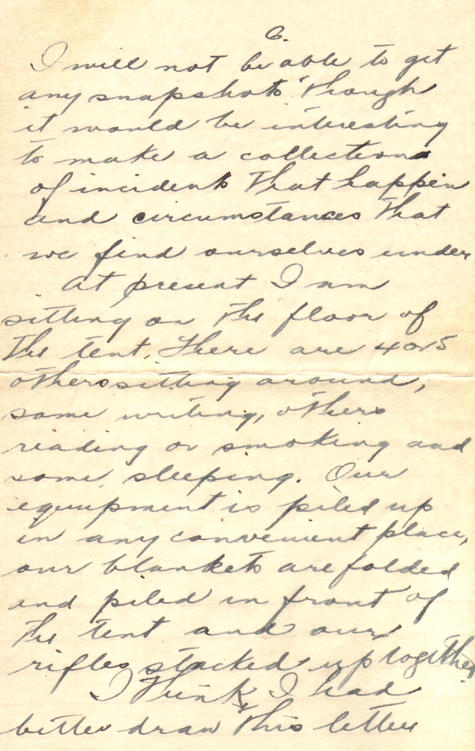 6.
I will not be able to get
any snapshots though
it would be interesting
to make a collection
of incidents that happen
and circumstances that
we find ourselves under
At present I am
sitting on the floor of
the tent. There are 4 or 5
others sitting around,
some writing, others
reading or smoking and
some sleeping. Our
equipment is piled up
in any convenient place,
our blankets are folded
and piled in front of
the tent and our
rifles stacked up together
I think I had
better draw this letter